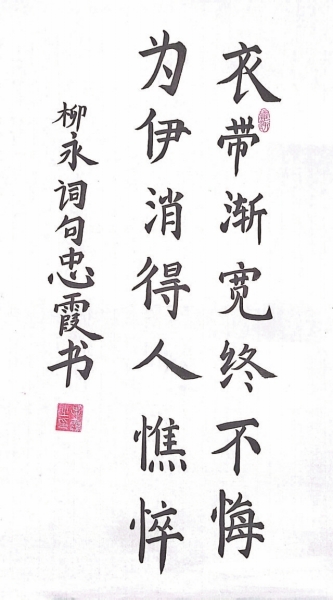 衣带渐宽终不悔
为伊消得人憔悴
柳永词句忠霞书